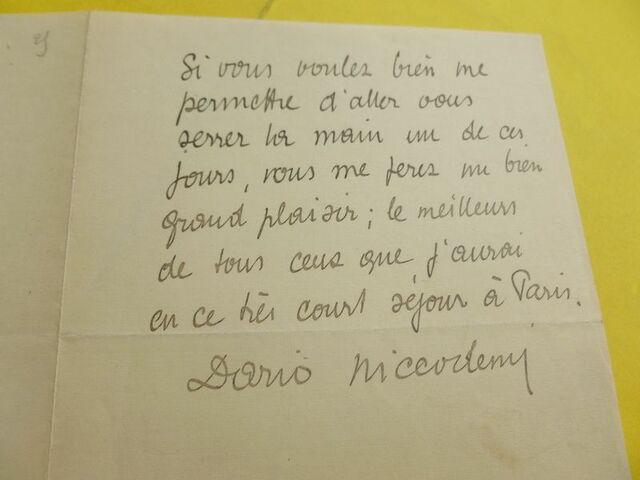 Si vous voulez bien me
permettre d'aller vous
serrer la main un de ces
jours, vous me ferez un bien
grand plaisir ; le meilleurs
de tous ceux que j'aurai
en ce très court séjour à Paris.
Dario Niccodemi